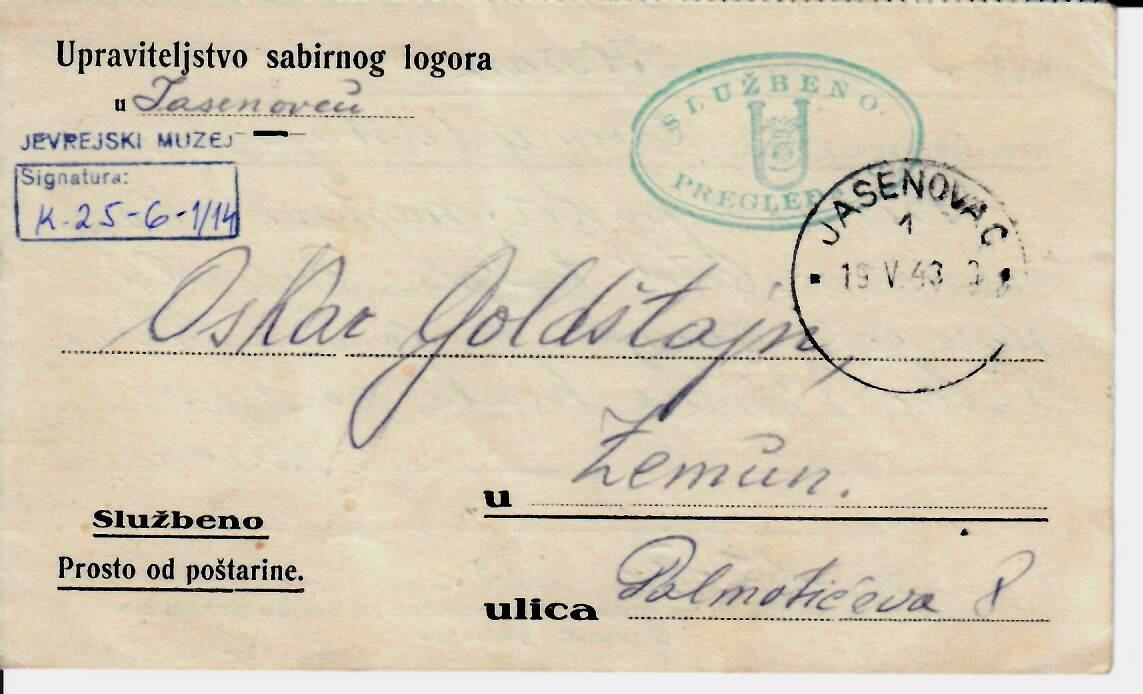 Upraviteljstvo sabirnog logora
u Jasenovcu
JEVREJSKI MUZEJ
Signatura:
K-25-6-1/14
SLUŽBENO
PREGLED
JASENOVAC
1
19 V 43
Oskar Goldštajn,
u Zemun.
Službeno
Prosto od poštarine.
ulica Palmotićeva 8